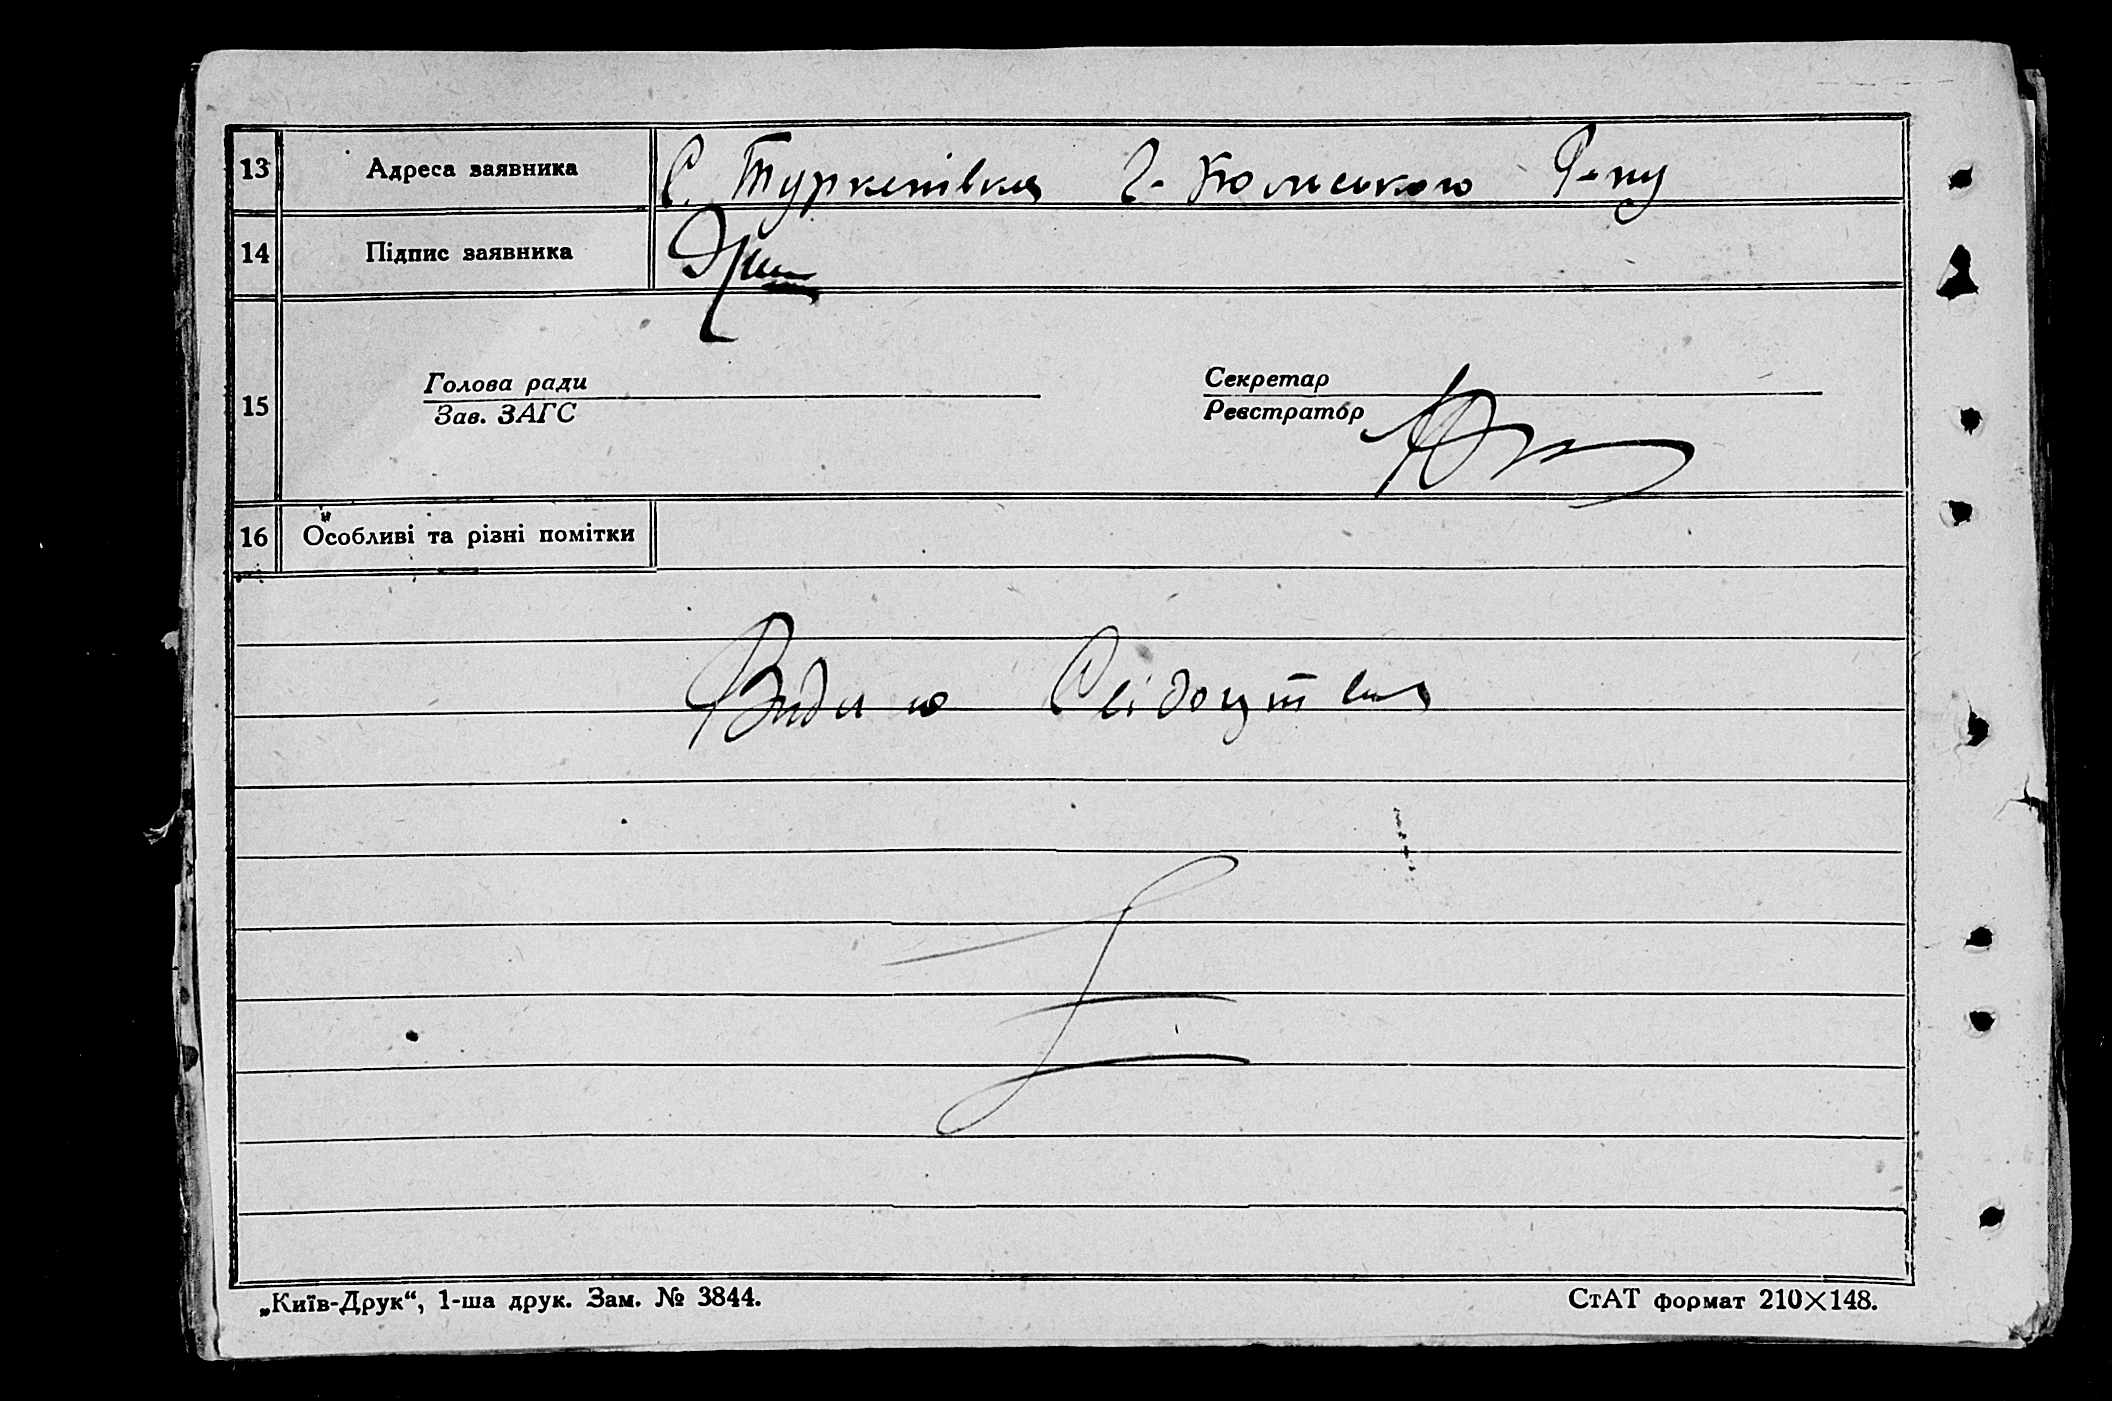 13 Адреса заявника С. Туркенівка Г-Польського Р-ну
14 Підпис заявника
Голова ради Секретар
15
Зав. ЗАГС Реєстратор
16 Особливі та різні помітки
Видано Свідоцтва
„Київ-Друк“, 1-ша друк. Зам. № 3844. СтАТ формат 210×148.